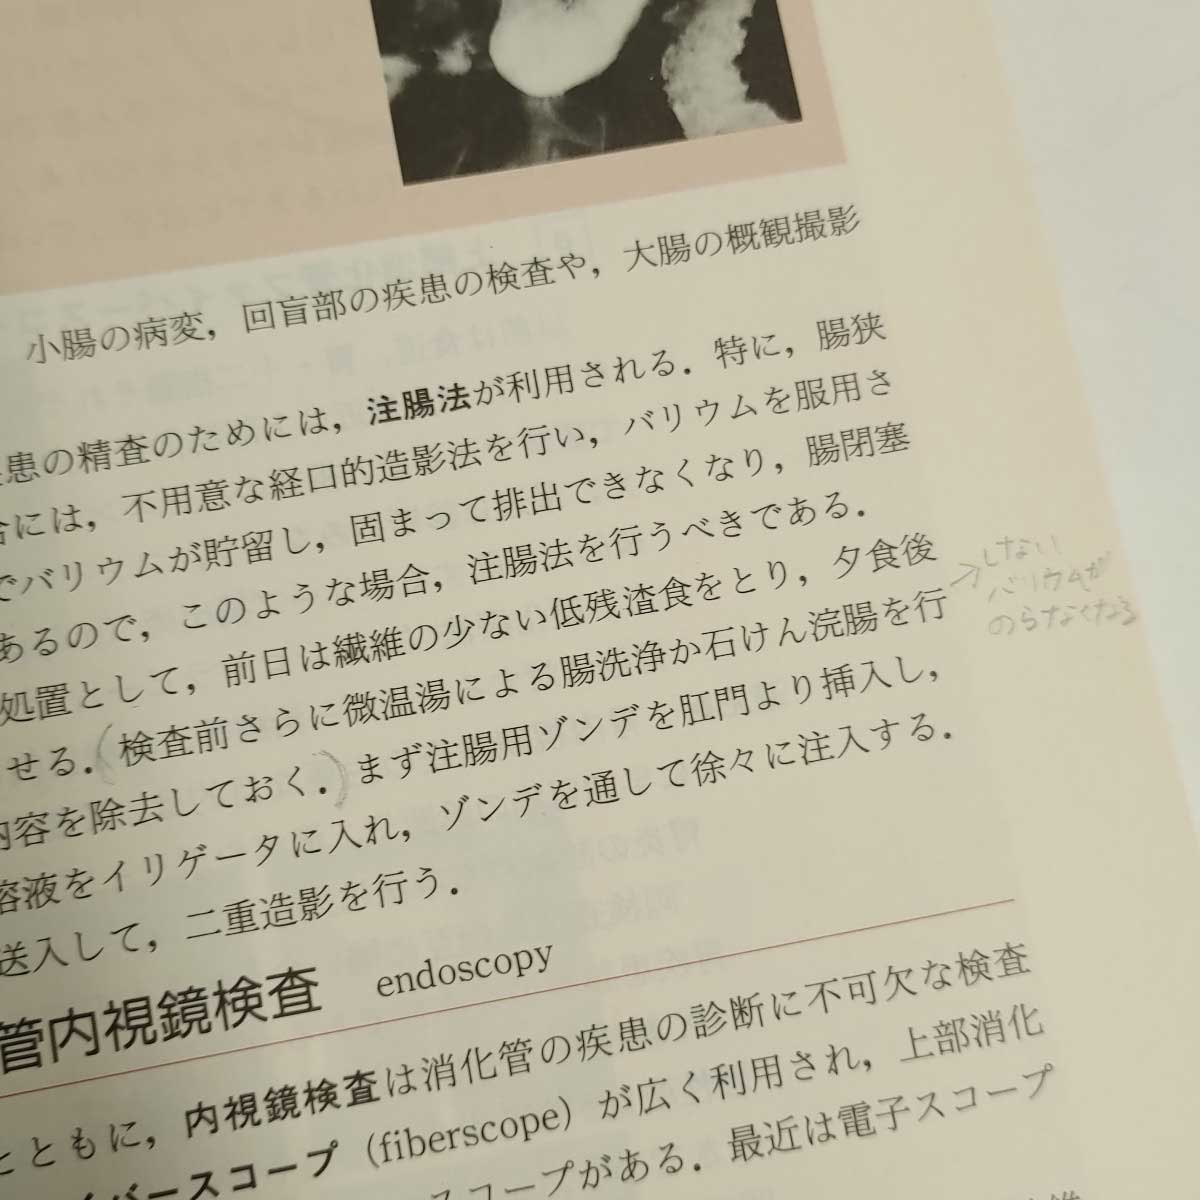 小腸の病変，回盲部の疾患の検査や，大腸の概観撮影
患の精査のためには，注腸法が利用される．特に，腸狭
合には，不用意な経口的造影法を行い，バリウムを服用さ
でバリウムが貯留し，固まって排出できなくなり，腸閉塞
あるので，このような場合，注腸法を行うべきである．
処置として，前日は繊維の少ない低残渣食をとり，夕食後
せる．（検査前さらに微温湯による腸洗浄か石けん浣腸を行
内容を除去しておく．）まず注腸用ゾンデを肛門より挿入し，
溶液をイリゲータに入れ，ゾンデを通して徐々に注入する．
送入して，二重造影を行う．
→しない
バリウムが
のらなくなる
管内視鏡検査 endoscopy
とともに，内視鏡検査は消化管の疾患の診断に不可欠な検査
バースコープ（fiberscope）が広く利用され，上部消化
スコープがある．最近は電子スコープ